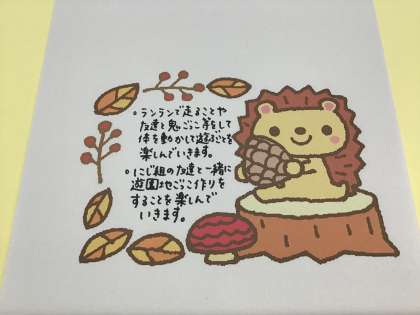 ・ランランで走ることや
友達と鬼ごっこ等をして
体を動かして遊ぶことを
楽しんでいきます。
・にじ組の友達と一緒に
遊園地ごっこ作りを
することを楽しんで
いきます。